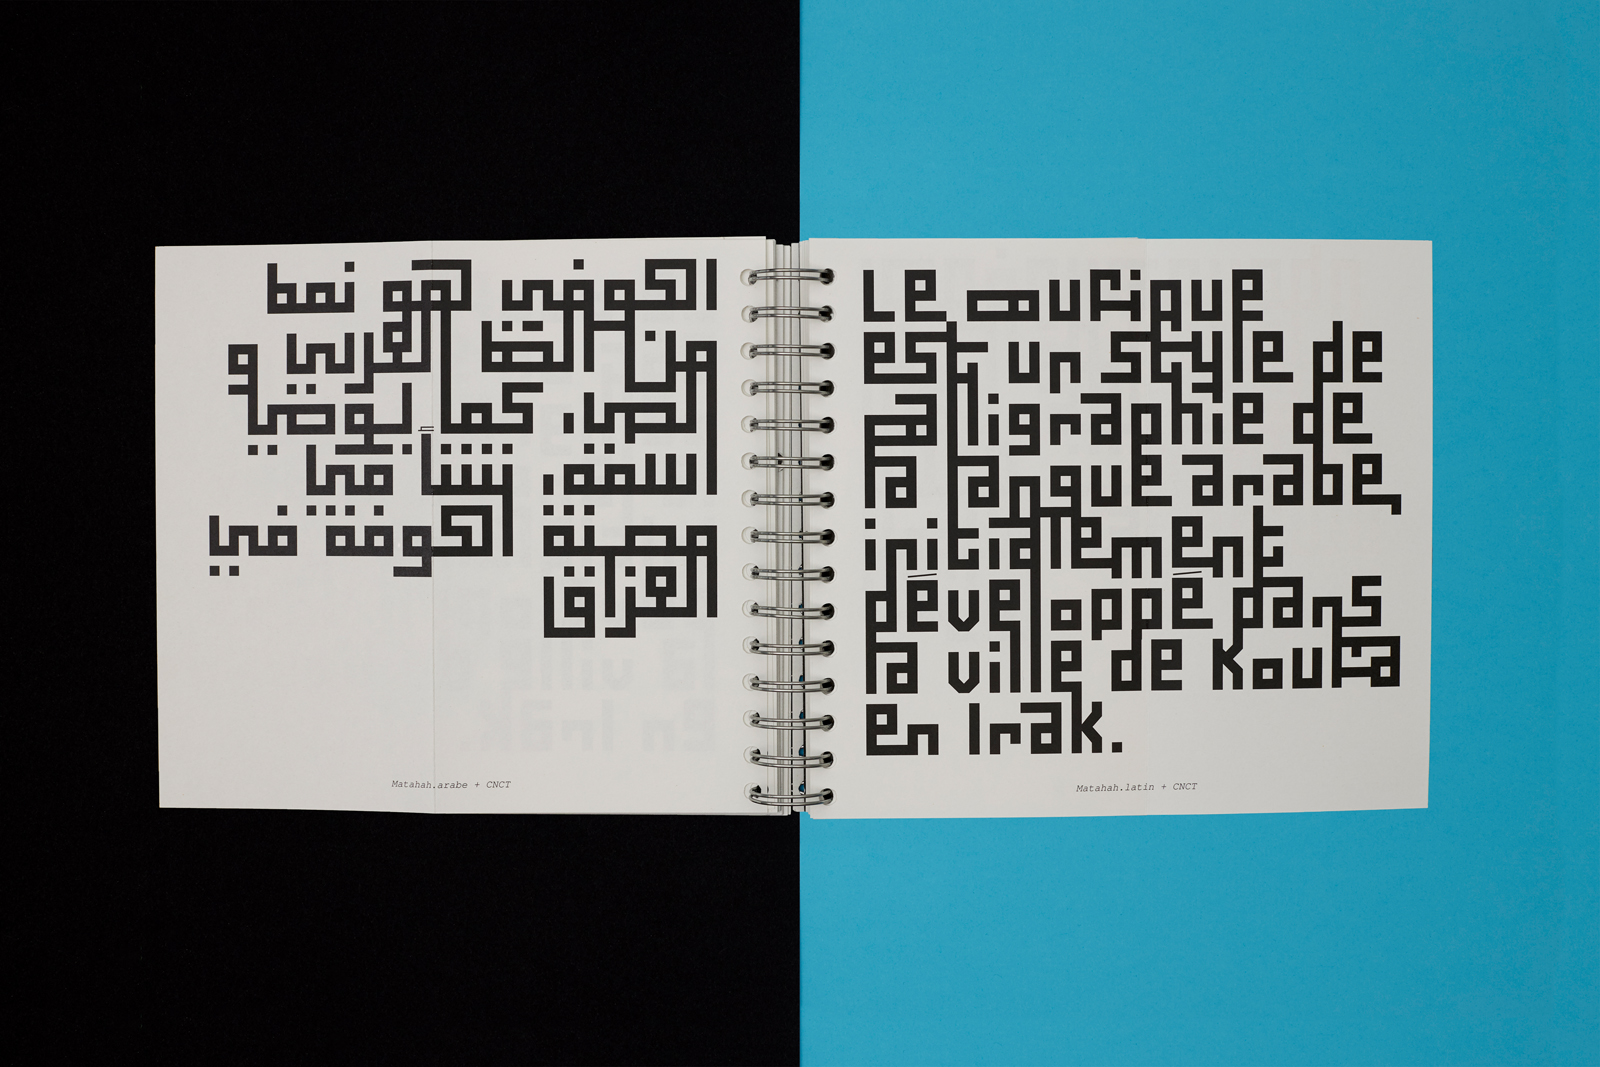 الكوفي هو نمط
من الخط العربي و
كما يوحي
اسمه، نشأ في
مدينة الكوفة في
العراق
Matahah.arabe + CNCT
Le coufique
est un style de
calligraphie de
la langue arabe,
initialement
développé dans
la ville de Koufa
en Irak.
Matahah.latin + CNCT